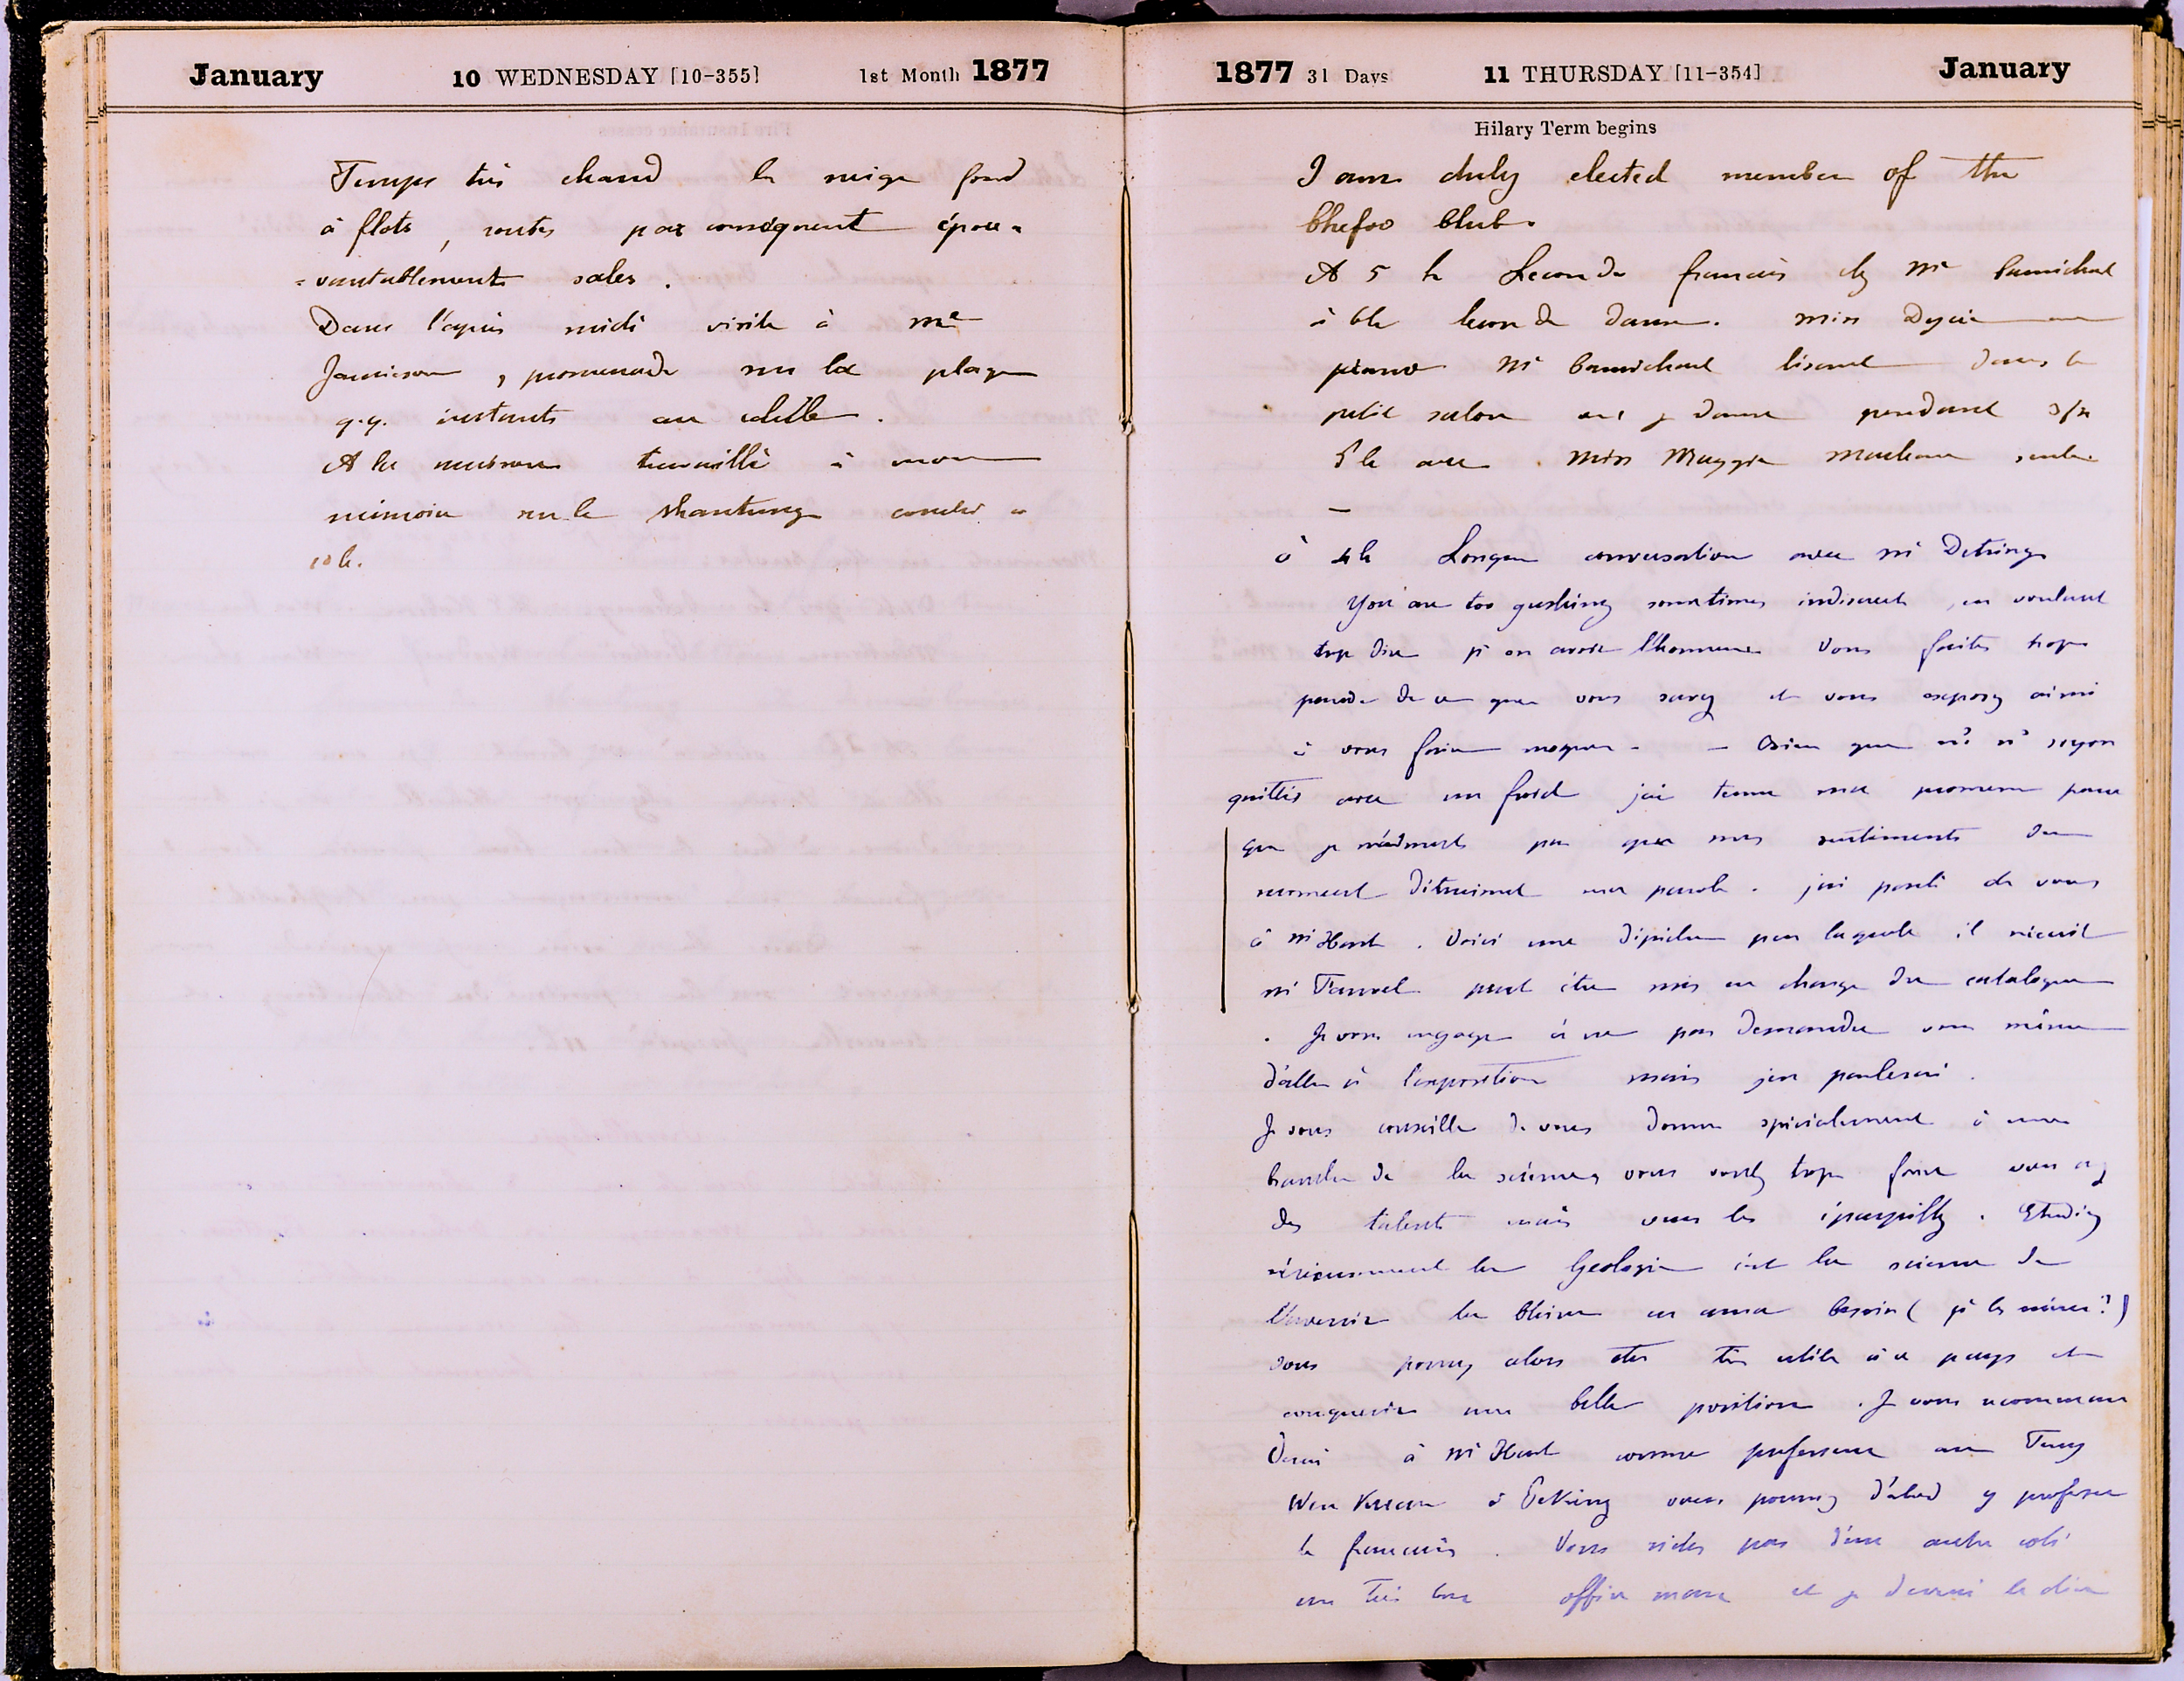 January 10 WEDNESDAY [10-355] 1st Month 1877
Temps très chaud la neige fond
à flots, routes par conséquent épou-
-vantablement sales.
Dans l'après midi visite à Me
Jamieson, promenade sur la plage
q.q. instants au
A la maison travaillé à mon
mémoire sur le Shantung couché à
10 h.
1877 31 Days 11 THURSDAY [11-354] January
Hilary Term begins
I am duly elected member of the
Chefoo Club.
A 5 h Lecon de francais chz Mr Carmichael
à 6h lecon de danse. Miss
piano Mr Carmichael lisant dans le
petit salon et je danse pendant 3/4
d'h avec Miss Maggie seule
—
à 4h Longue conversation avec Mr Detring
You are too gushing sometimes indiscreet, en voulant
trop dire Vous faites trop
parade de ce que vous savez et vous exposez ainsi
à vous faire moquer. — Bien que ns ns soyons
quittés avec un froid j'ai tenu ma promesse parce
que je n'admets pas que mes sentiments du
moment détruisent ma parole. j'ai parlé de vous
à Mr Hart. Voici une dépêche par laquelle il
Mr Fauvel peut être mis en charge du catalogue
. Je vous engage à ne pas demander vous même
d'aller à l'exposition mais j'en parlerai.
Je vous conseille de vous donner spécialement à une
branche de la science, vous voulez trop faire vous avez
des talents mais vous les éparpillez. Etudiez
sérieusement la Geologie c'est la science de
l'avenir la Chine en aura besoin ( les mines?)
vous pourrez alors etre très utile à ce pays et
conquerir une belle position. Je vous recomman
derai à Mr Hart comme professeur au Tung
Wen Kuan à Peking vous pourrez d'abord y professer
le francais. Vous n'etes pas d'un autre coté
un très bon office man et je devrai le dire